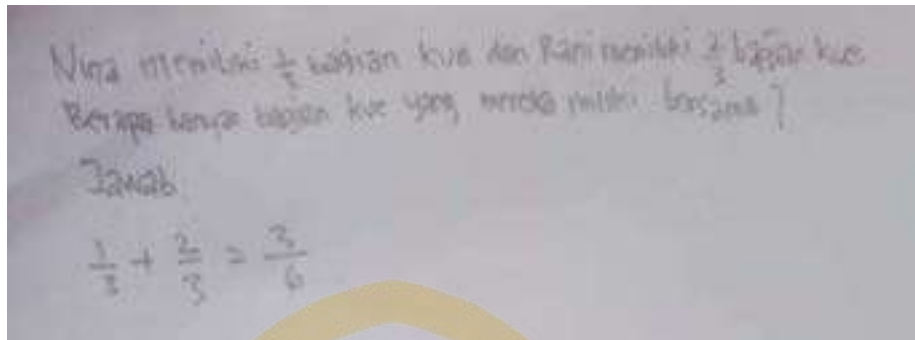 Nina memiliki 1/3 bagian kue dan Rani memiliki 2/3 bagian kue.
Berapa banyak bagian kue yang mereka miliki bersama?
Jawab
1/3 + 2/3 = 3/6